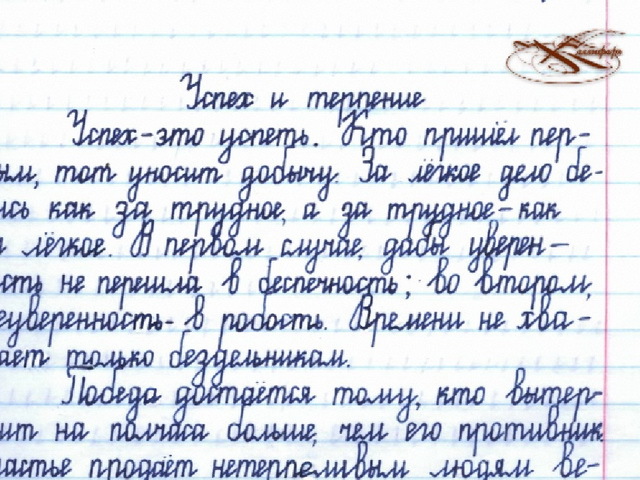 Каллиграфъ
Успех и терпение
Успех-это успеть. Кто пришёл пер-
ым, тот уносит добычу. За лёгкое дело бе-
ись как за трудное, а за трудное-как
лёгкое. В первом случае, дабы уверен-
сть не перешла в беспечность; во втором,
еуверенность- в робость. Времени не хва-
ает только бездельникам.
Победа достаётся тому, кто вытер-
ит на полчаса больше, чем его противник.
частье продаёт нетерпеливым людям ве-